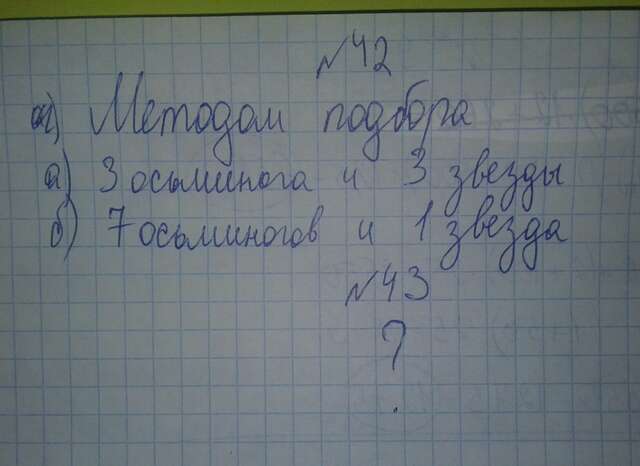 №42
а) Методом подбора
а) 3 осьминога и 3 звезды
б) 7 осьминогов и 1 звезда
№43
?